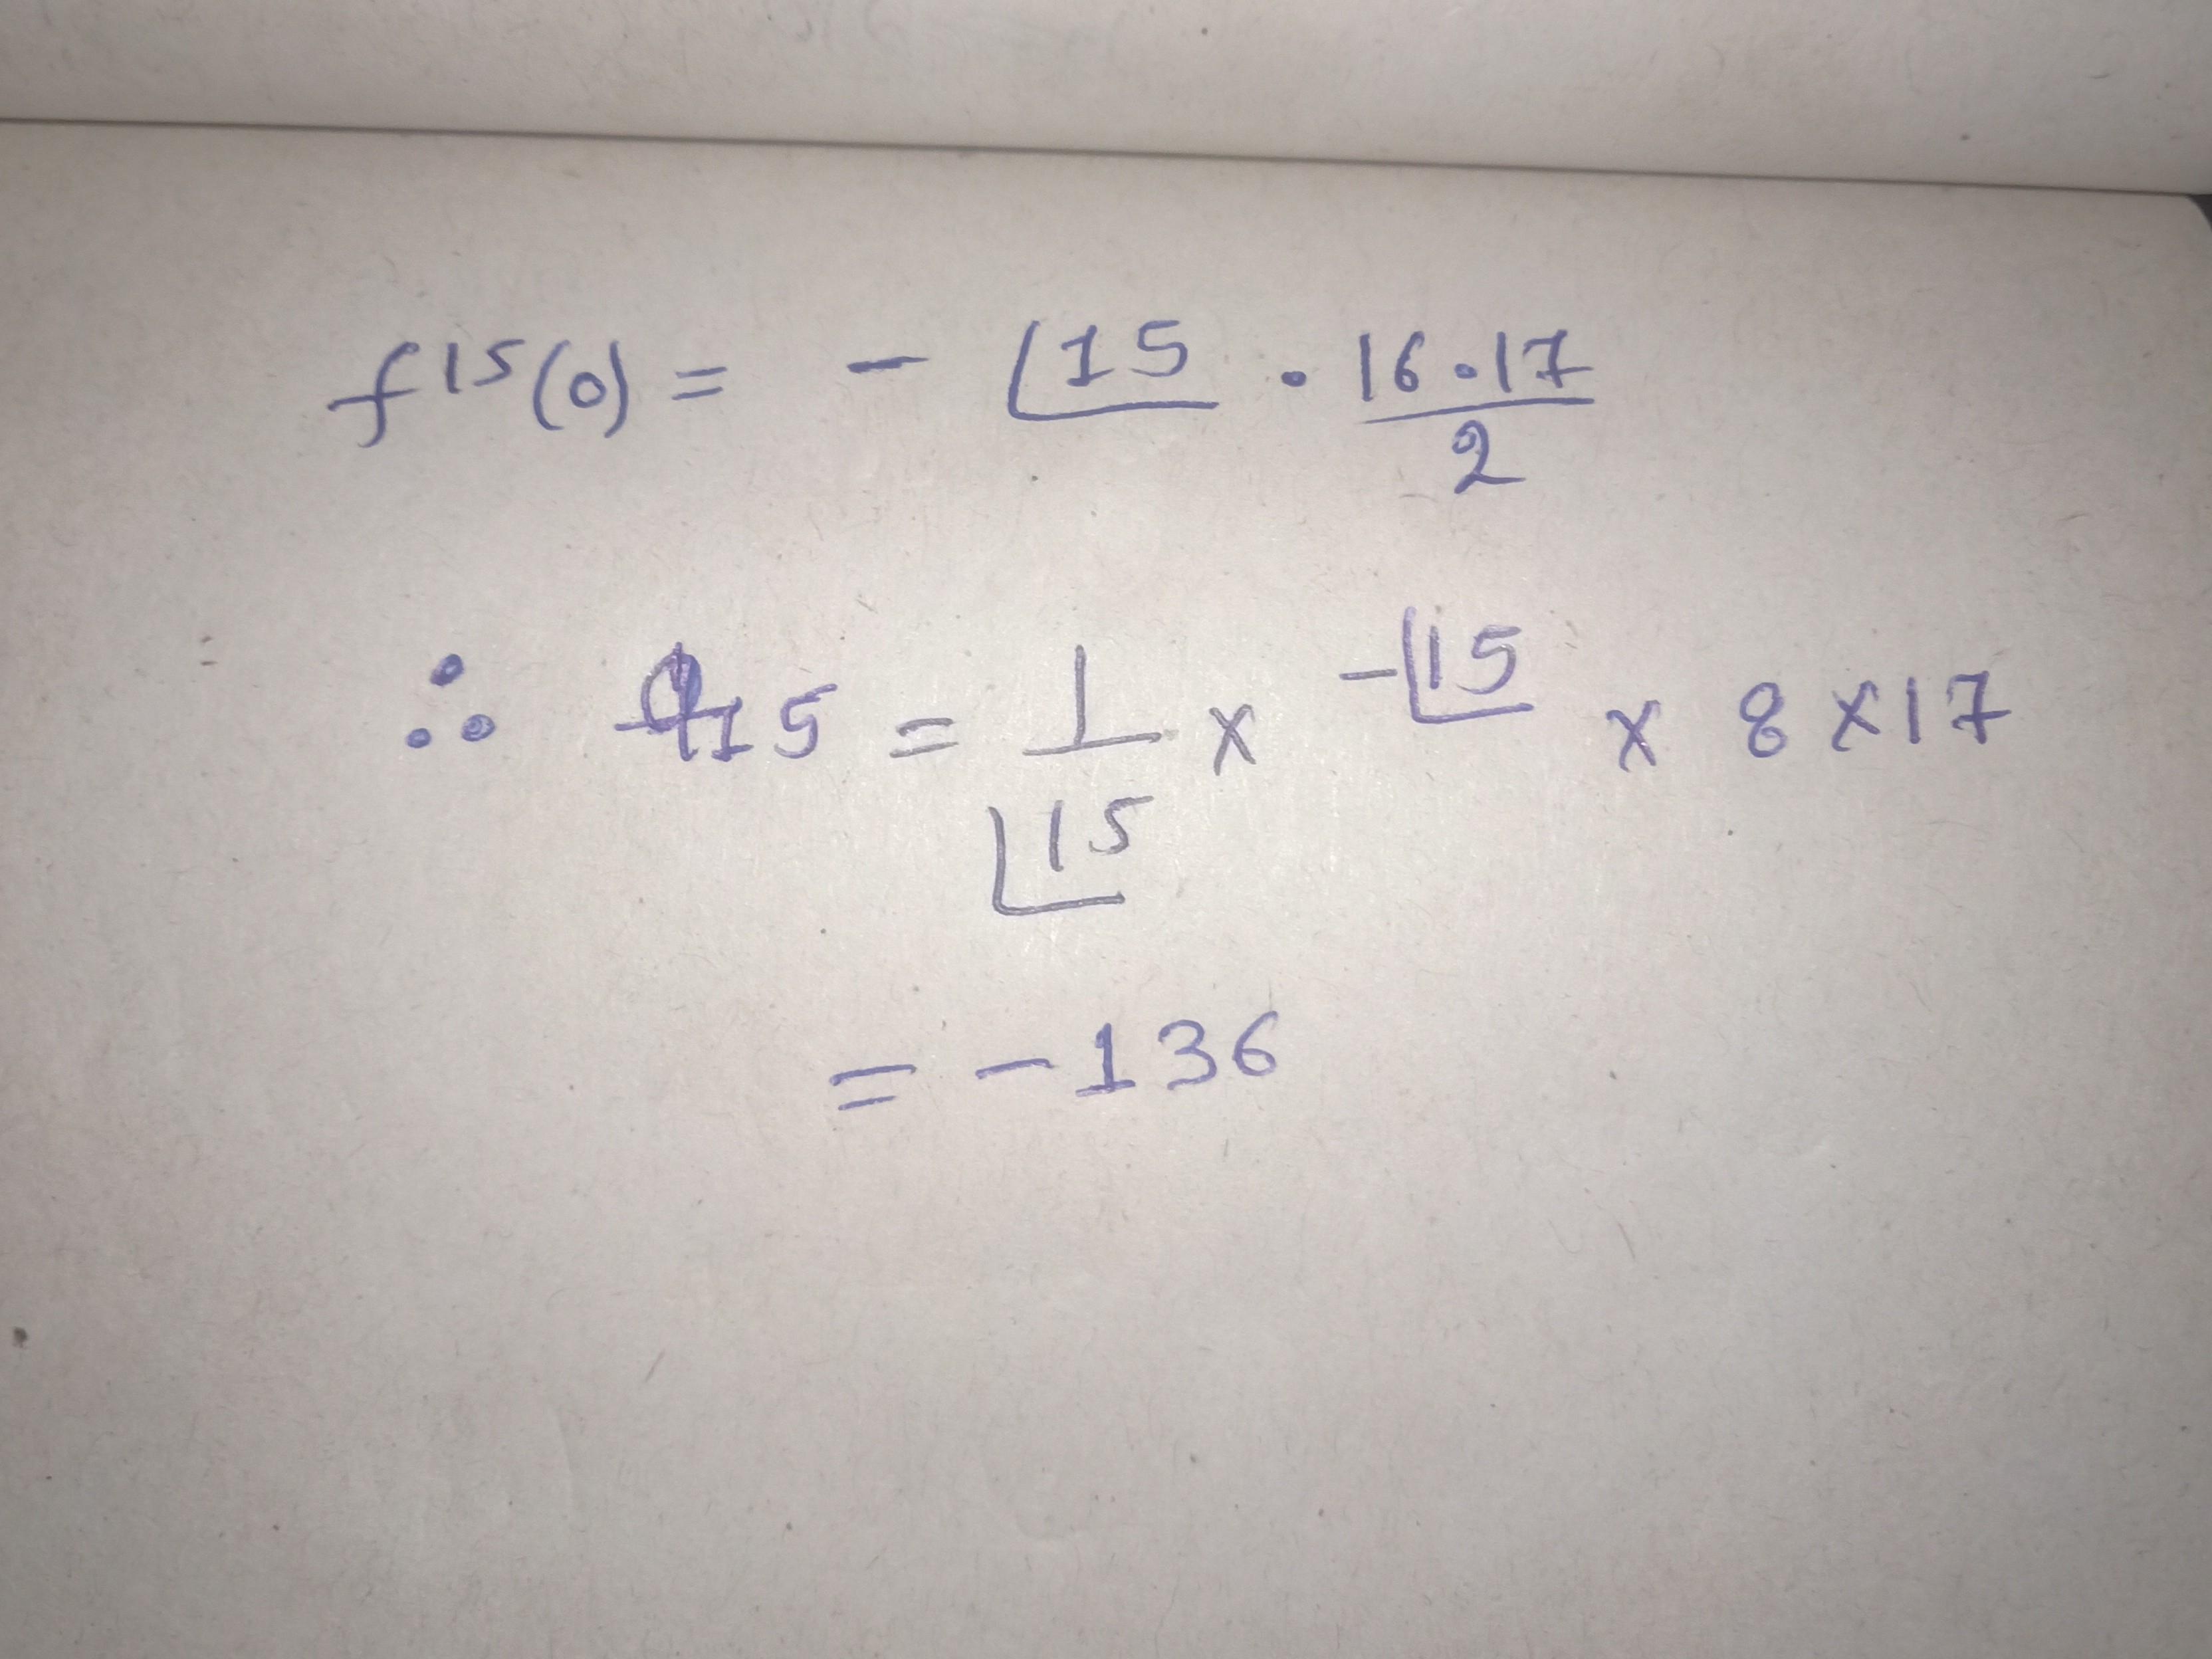 f¹⁵(0) = - ⌊15 · 16·17/2
∴ a15 = 1/⌊15 × -⌊15 × 8×17
= -136